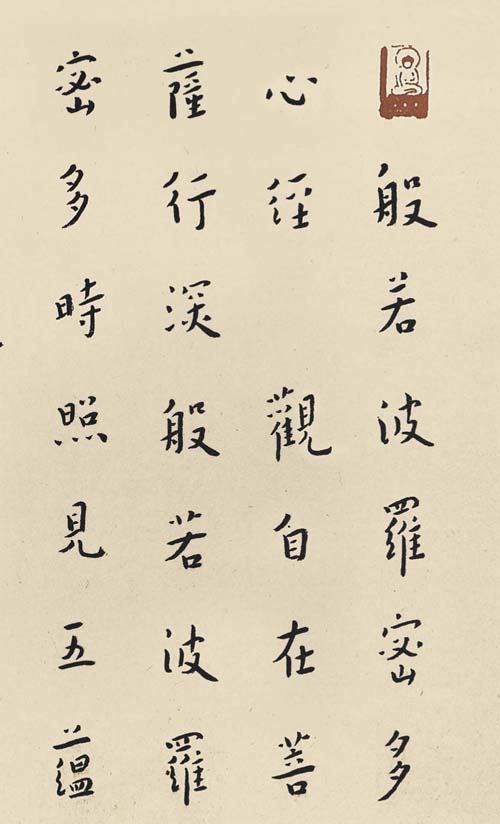 般若波羅密多
心经 觀自在菩
薩行深般若波羅
密多時照見五蕴